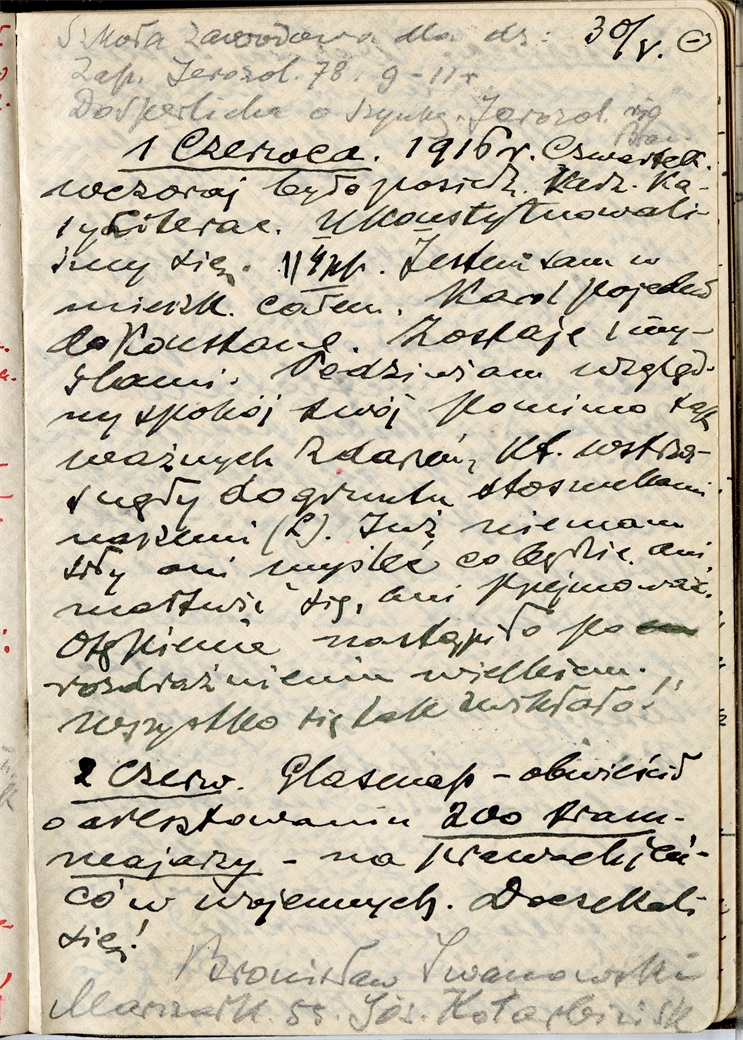 Szkoła Zawodowa dla dz: 30/V.
Zap. Jerozol. 78. 9-11 r
Do Sperlicha o szynkę. Jerozol. róg
Brac.
1 Czerwca. 1916 r. Czwartek.
wczoraj było posiedz. Kadz. Ka-
sy Literac. Ukonstytuowali
śmy się. 11 4 pp. Jestem sam w
mieszk. całem. Karol pojechał
do Konstanc. Zostaję z my-
ślami. Podziwiam względ-
ny spokój swój pomimo tak
ważnych zdarzeń, kt. wstrzą-
snęły do gruntu stosunkami
naszemi (L). Już niemam
siły ani myśleć co będzie, ani
martwić się, ani przejmować.
Otępienie nastąpiło po
rozdrażnieniu wielkiem.
Wszystko się tak zwikłało!!
2 Czerw. Glasenap - obwieścił
o aresztowaniu 200 tram-
wajarzy - na prawach jeń-
ców wojennych. Doczekali
się!
Bronisław Iwanowski
Marszałk. 55. Józ. Kotarbińsk